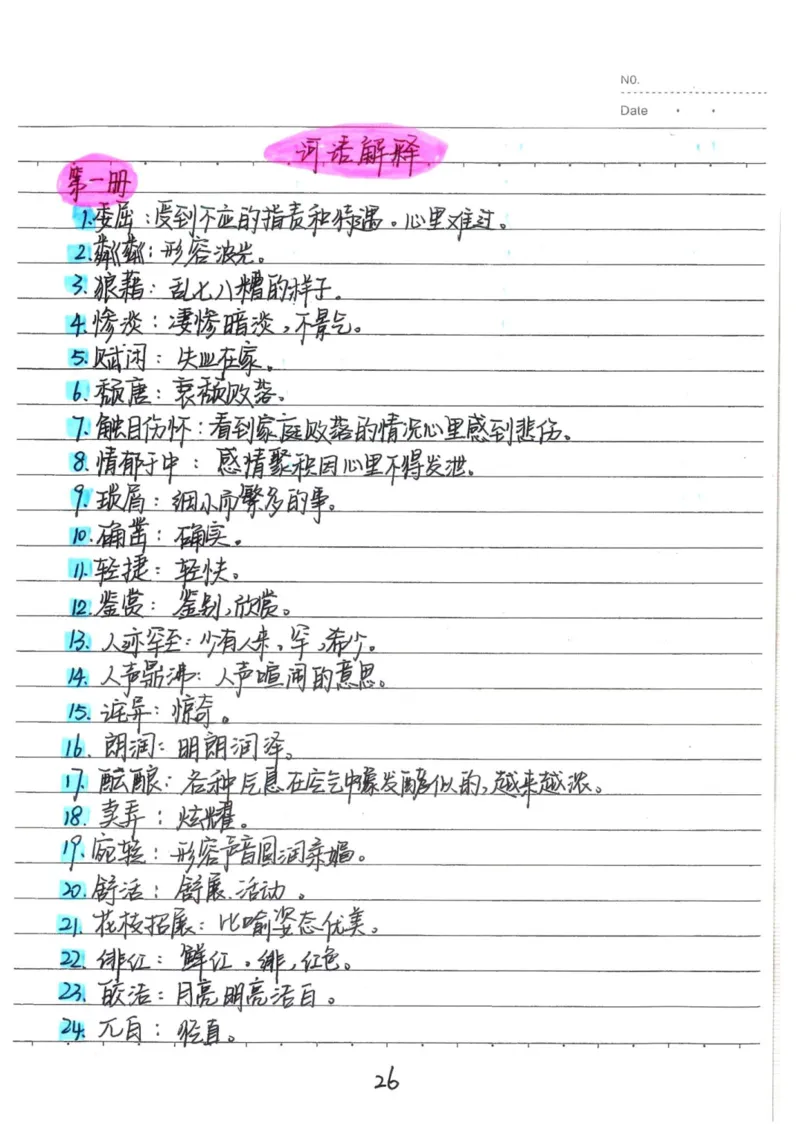 NO.
Date
词语解释
第一册
1.委屈：受到不应的指责和待遇。心里难过。
2.粼粼：形容波光。
3.狼藉：乱七八糟的样子。
4.惨淡：凄惨暗淡，不景气。
5.赋闲：失业在家。
6.颓唐：衰颓败落。
7.触目伤怀：看到家庭败落的情况心里感到悲伤。
8.情郁于中：感情聚积因心里不得发泄。
9.琐屑：细小而繁多的事。
10.确凿：确实。
11.轻捷：轻快。
12.鉴赏：鉴别，欣赏。
13.人迹罕至：少有人来，罕，希少。
14.人声鼎沸：人声喧闹的意思。
15.诧异：惊奇。
16.朗润：明朗润泽。
17.酝酿：各种气息在空气中像发酵似的，越来越浓。
18.卖弄：炫耀。
19.宛转：形容声音圆润柔媚。
20.舒活：舒展.活动。
21.花枝招展：比喻姿态优美。
22.绯红：鲜红。绯，红色。
23.皎洁：月亮明亮洁白。
24.兀自：径直。
26